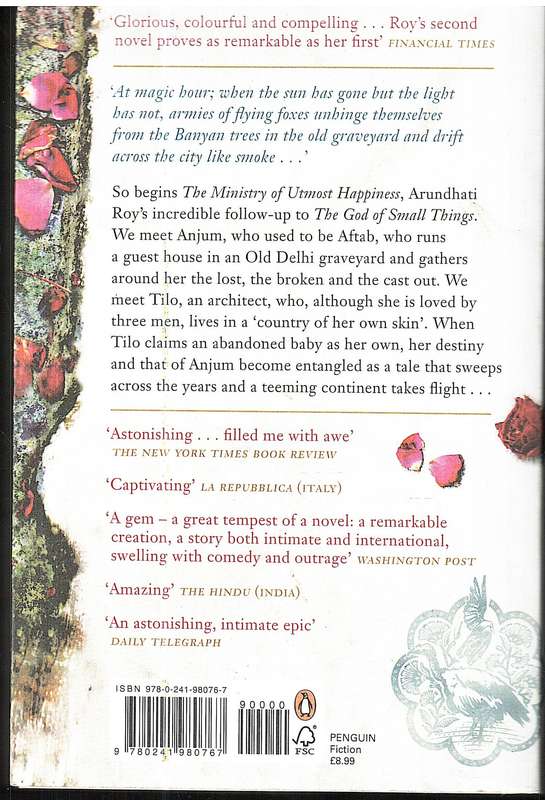 ‘Glorious, colourful and compelling . . . Roy’s second
novel proves as remarkable as her first’ FINANCIAL TIMES
‘At magic hour; when the sun has gone but the light
has not, armies of flying foxes unhinge themselves
from the Banyan trees in the old graveyard and drift
across the city like smoke . . .’
So begins The Ministry of Utmost Happiness, Arundhati
Roy’s incredible follow-up to The God of Small Things.
We meet Anjum, who used to be Aftab, who runs
a guest house in an Old Delhi graveyard and gathers
around her the lost, the broken and the cast out. We
meet Tilo, an architect, who, although she is loved by
three men, lives in a ‘country of her own skin’. When
Tilo claims an abandoned baby as her own, her destiny
and that of Anjum become entangled as a tale that sweeps
across the years and a teeming continent takes flight . . .
‘Astonishing . . . filled me with awe’
THE NEW YORK TIMES BOOK REVIEW
‘Captivating’ LA REPUBBLICA (ITALY)
‘A gem – a great tempest of a novel: a remarkable
creation, a story both intimate and international,
swelling with comedy and outrage’ WASHINGTON POST
‘Amazing’ THE HINDU (INDIA)
‘An astonishing, intimate epic’
DAILY TELEGRAPH
ISBN 978-0-241-98076-7
90000
9 780241 980767
FSC
PENGUIN
Fiction
£8.99